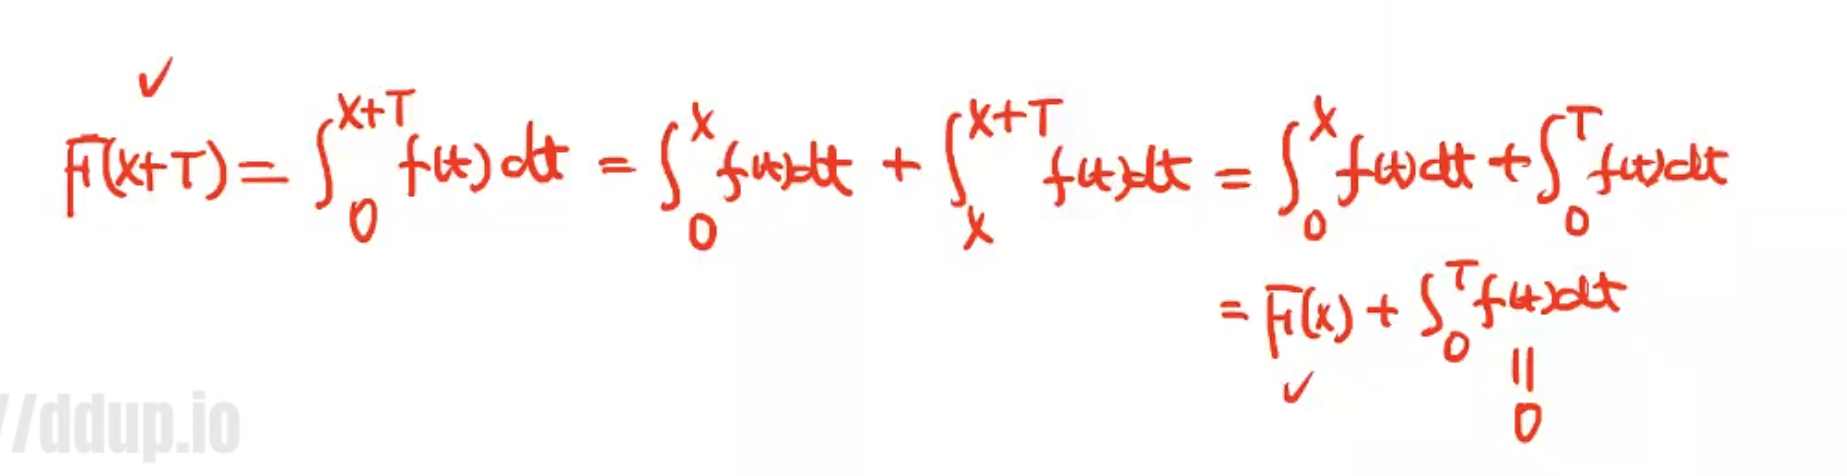 ✓
F(x+T) = ∫₀^{x+T} f(t) dt = ∫₀^x f(t)dt + ∫ₓ^{x+T} f(t)dt = ∫₀^x f(t)dt + ∫₀^T f(t)dt
= F(x) + ∫₀^T f(t)dt
✓ ||
0
//ddup.io